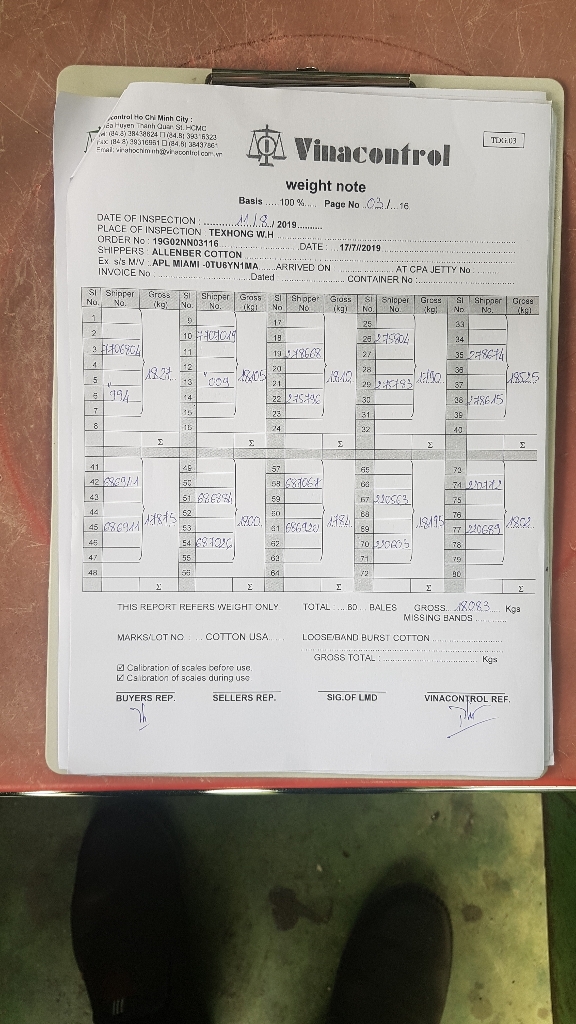 control Ho Chi Minh City :
Huyen Thanh Quan St. HCMC
(84.8) 38438624 (84.8) 39316323
Fax: (84.8) 39316961 (84.8) 38437861
Email: vinahochiminh@vinacontrol.com.vn
Vinacontrol
TDG.03
weight note
Basis .... 100 %..... Page No .03./....16
DATE OF INSPECTION : 11/8/ 2019
PLACE OF INSPECTION TEXHONG W.H
ORDER No : 19G02NN03116 DATE : 17/7//2019
SHIPPERS ALLENBER COTTON
Ex s/s M/V APL MIAMI -0TU6YN1MA ARRIVED ON AT CPA JETTY No
INVOICE No Dated CONTAINER No :
SI No. Shipper No. Gross (kg) SI No. Shipper No. Gross (kg) SI No. Shipper No. Gross (kg) SI No. Shipper No. Gross (kg) SI No. Shipper No. Gross (kg)
1 9 17 25 33
2 10 18 26 275804 34
3 11 19 278668 27 35 278674
4 12 20 28 36
5 13 009 21 1810 29 275783 37
6 794 14 22 275796 30 38 278615
7 15 23 31 39
8 16 24 32 40
Σ Σ Σ Σ Σ
41 49 57 65 73
42 686941 50 58 66 74
43 51 59 67 220563 75
44 52 60 68 76
45 686911 53 61 686920 1784 69 77 220689 1802
46 54 62 70 220635 78
47 55 63 71 79
48 56 64 72 80
Σ Σ Σ Σ Σ
THIS REPORT REFERS WEIGHT ONLY TOTAL ....80.. BALES GROSS 18083 Kgs
MISSING BANDS
MARKS/LOT NO ..... COTTON USA.... LOOSE/BAND BURST COTTON
GROSS TOTAL : Kgs
☑ Calibration of scales before use
☑ Calibration of scales during use
BUYERS REP. SELLERS REP. SIG.OF LMD VINACONTROL REF.